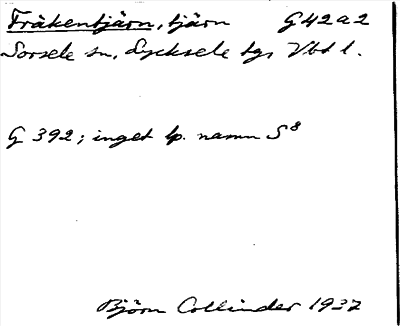 Fräkentjärn, tjärn G 42 a 2
Sorsele sn, Lycksele tgs Vbt l.
G 392; inget lp. namn S⁸
Björn Collinder 1937